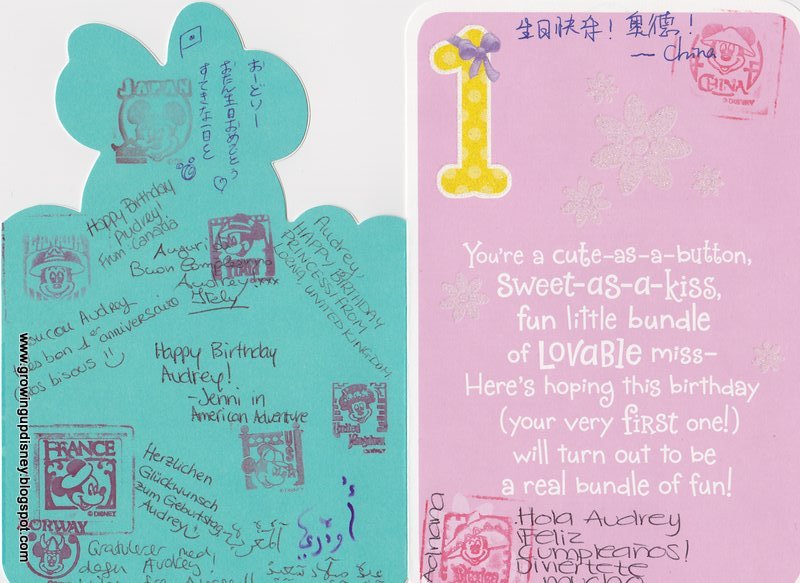 JAPAN
おーどりー
おたん生日おめでとう
すてきな一日を
Happy Birthday
Audrey!
From Canada
Auguri
Buon Compleanno
Audrey
Italy
ITALY
Audrey,
HAPPY BIRTHDAY
PRINCESS! FROM
UNITED KINGDOM
Coucou Audrey
bon 1er anniversaire
Gros bisous
Happy Birthday
Audrey!
-Jenni in
American Adventure
United
Kingdom
FRANCE
© DISNEY
Herzlichen
Glückwunsch
zum Geburtstag
Audrey!
NORWAY
Gratulerer med
dagen Audrey!
أودري
www.growingupdisney.blogspot.com
1
生日快乐！奥德！
— China
CHINA
© DISNEY
You're a cute-as-a-button,
sweet-as-a-kiss,
fun little bundle
of LOVABLE miss-
Here's hoping this birthday
(your very first one!)
will turn out to be
a real bundle of fun!
Hola Audrey
Feliz
Cumpleaños!
Diviertete
mucho
Adriana
Mexico